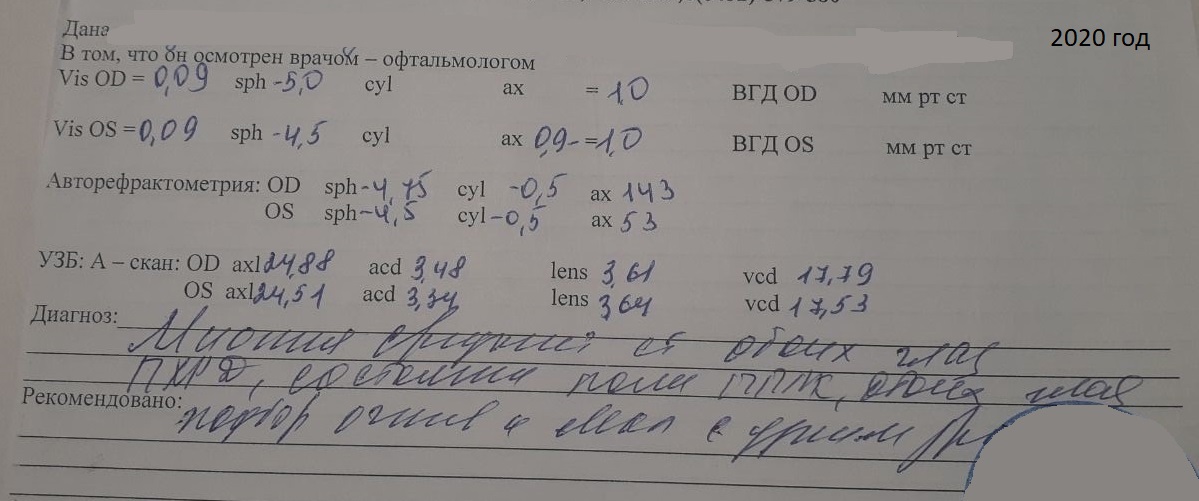 2020 год
Дана
В том, что он осмотрен врачом – офтальмологом
Vis OD = 0,09 sph -5,0 cyl ax = 1,0 ВГД OD мм рт ст
Vis OS = 0,09 sph -4,5 cyl ax 0,9- =1,0 ВГД OS мм рт ст
Авторефрактометрия: OD sph -4,75 cyl -0,5 ax 143
OS sph -4,5 cyl -0,5 ax 53
УЗБ: А – скан: OD axl 24,88 acd 3,48 lens 3,61 vcd 17,79
OS axl 24,51 acd 3,34 lens 3,64 vcd 17,53
Диагноз:
Миопия средней ст обоих глаз
ПХРД, состояние после ППЛК, обоих глаз
Рекомендовано: подбор очков и